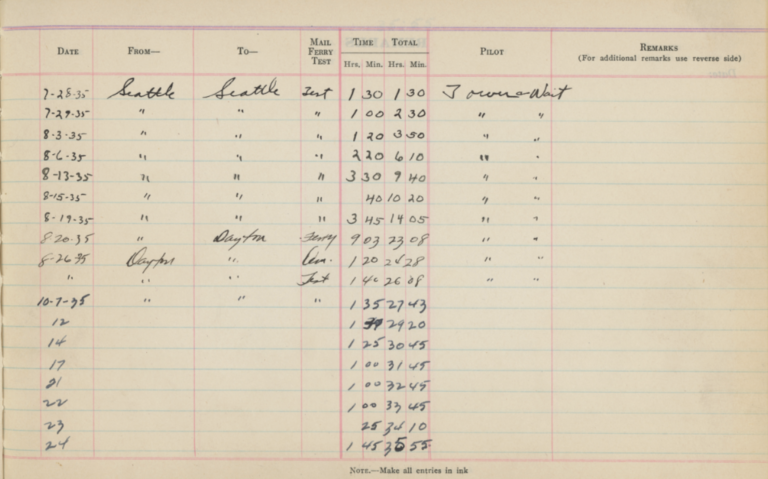 DATE FROM— TO— MAIL FERRY TEST TIME Hrs. Min. TOTAL Hrs. Min. PILOT REMARKS (For additional remarks use reverse side)
7-28-35 Seattle Seattle Test 1 30 1 30 Tower-Wait
7-29-35 " " " 1 00 2 30 " "
8-3-35 " " " 1 20 3 50 " "
8-6-35 " " " 2 20 6 10 " "
8-13-35 " " " 3 30 9 40 " "
8-15-35 " " " 40 10 20 " "
8-19-35 " " " 3 45 14 05 " "
8-20-35 " Dayton Ferry 9 03 23 08 " "
8-26-35 Dayton " 1 20 24 28 " "
" " " Test 1 40 26 08 " "
10-7-35 " " " 1 35 27 43
12 1 29 20
14 1 25 30 45
17 1 00 31 45
21 1 00 32 45
22 1 00 33 45
23 25 34 10
24 1 45 35 55
NOTE.—Make all entries in ink